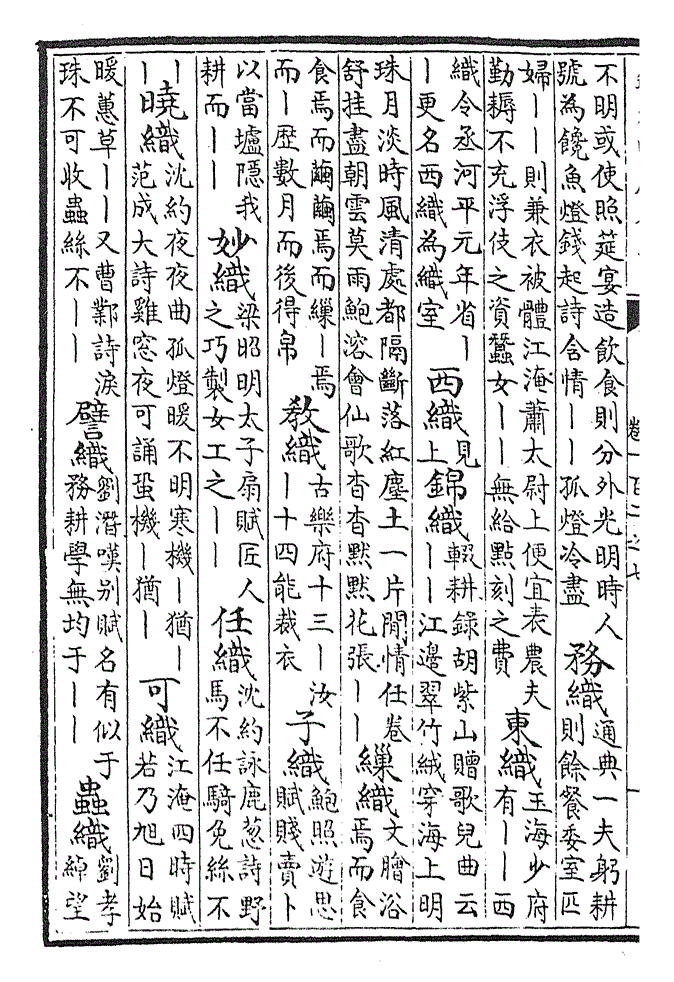 不明或使照筵宴造飲食則分外光明時人
號為饞魚燈錢起詩含情丨丨孤燈冷盡
務織
通典一夫躬耕
則餘餐委室匹
婦丨丨則兼衣被體江淹蕭太尉上便宜表農夫
勤耨不充浮伎之資蠶女丨丨無給點刻之費
東織
玉海少府
有丨丨西
織令丞河平元年省丨
丨更名西織為織室
西織
見
上
錦織
輟耕錄胡紫山贈歌兒曲云
丨丨江邊翠竹絨穿海上明
珠月淡時風清處都隔斷落紅塵土一片閒情任卷
舒挂盡朝雲莫雨鮑溶會仙歌杳杳黙黙花張丨丨
繅織
文膾浴
焉而食
食焉而繭繭焉而繅丨焉
而丨歷數月而後得帛
教織
古樂府十三丨汝
丨十四能裁衣
子織
鮑照遊思
賦賤賣卜
以當壚隱我
耕而丨丨
妙織
梁昭明太子扇賦匠人
之巧製女工之丨丨
任織
沈約詠鹿葱詩野
馬不任騎免絲不
丨
丨
曉織
沈約夜夜曲孤燈暖不明寒機丨猶丨
范成大詩雞窓夜可誦蛩機丨猶丨
可織
江淹四時賦
若乃旭日始
暖蕙草丨丨又曹鄴詩淚
珠不可收蟲絲不丨丨
譬織
劉潛嘆别賦名有似于
務耕學無均于丨丨
蟲織
劉孝
綽望